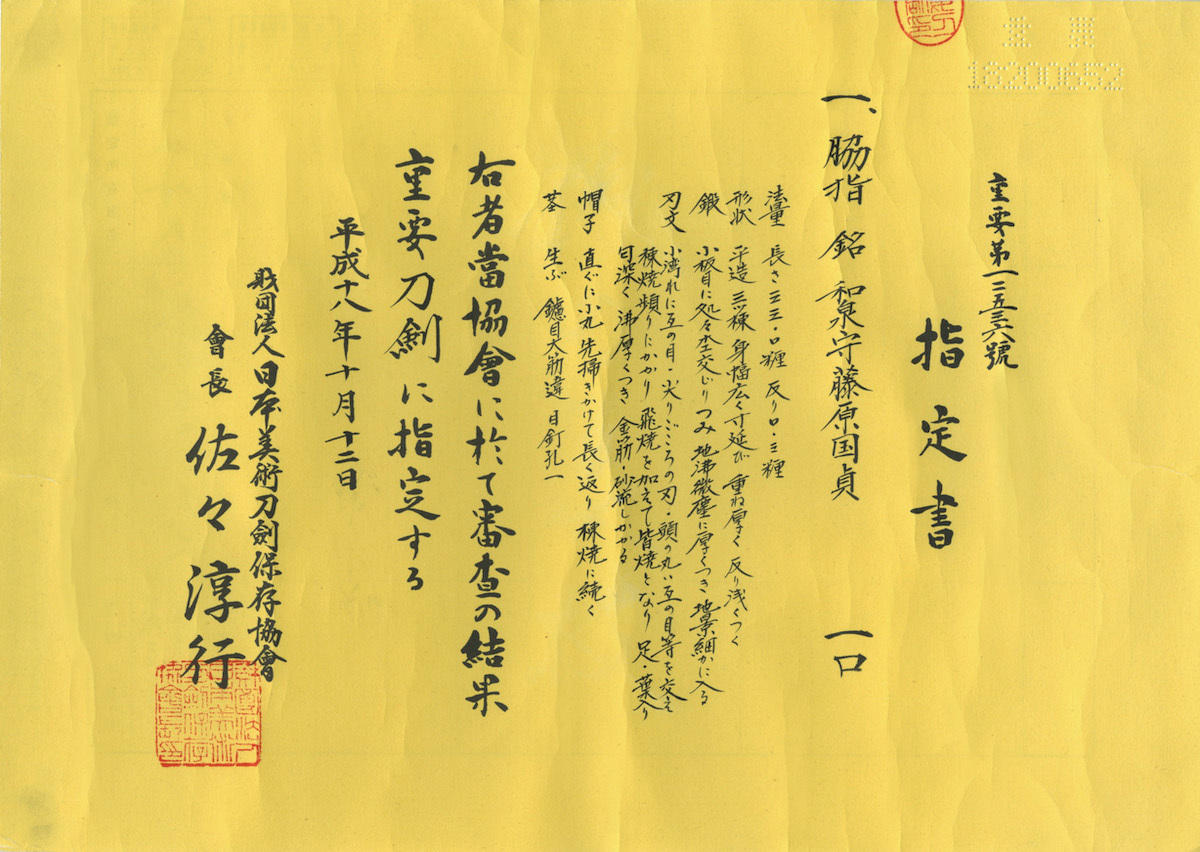 重要第一二五三六號
指定書
一、脇指 銘 和泉守藤原国貞 一口
法量 長さ三三・〇糎 反り〇・三糎
形状 平造 三ツ棟 身幅広く寸延び 重ね厚く 反り浅くつく
鍛 小板目に処々杢交じりつみ 地沸微塵に厚くつき 地景細かに入る
刃文 小湾れに互の目・尖りごころの刃・頭の丸い互の目等を交え
棟焼頻りにかかり 飛焼を加えて皆焼となり 足・葉入り
匂深く 沸厚くつき 金筋・砂流しかかる
帽子 直ぐに小丸 先掃きかけて長く返り 棟焼に続く
茎 生ぶ 鑢目大筋違 目釘孔一
右者當協會に於て審査の結果
重要刀剣に指定する
平成十八年十月十二日
財団法人日本美術刀劍保存協會
會長 佐々淳行
重美
18200652